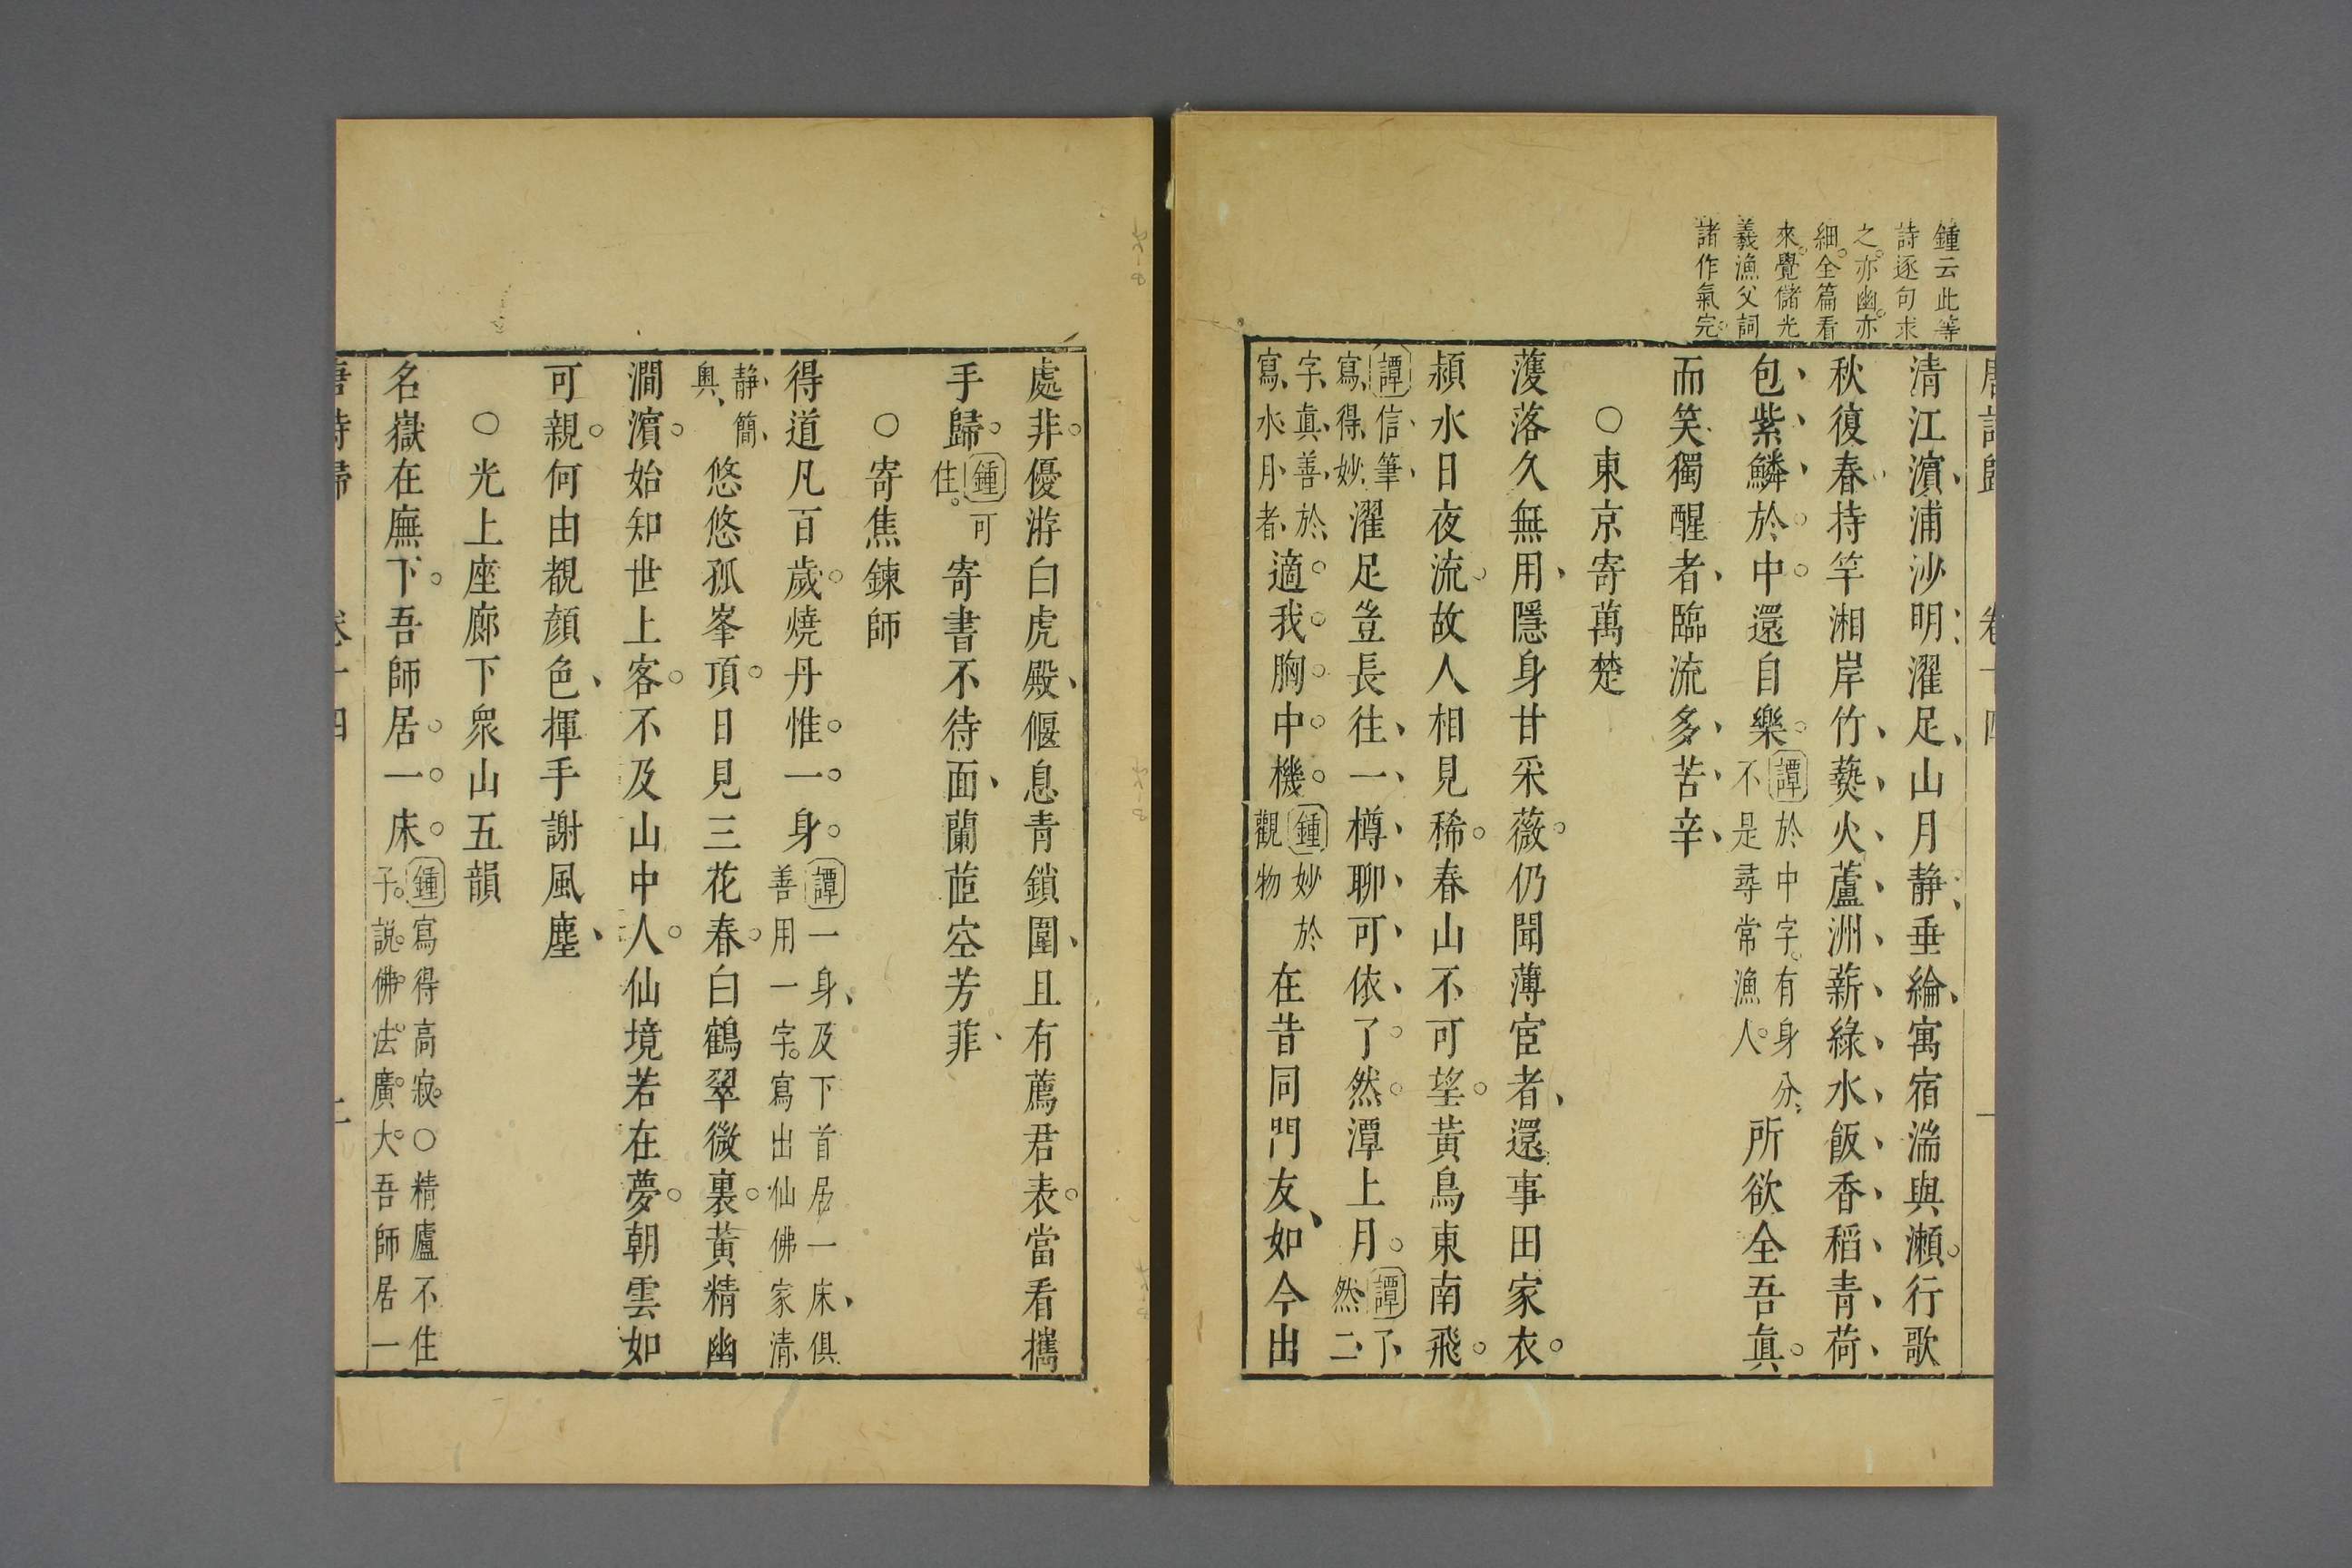 鍾云此等
詩逐句求
之亦幽亦
細全篇看
來覺儲光
羲漁父詞
諸作氣完
清江濵浦沙明濯足山月静垂綸寓宿湍與瀨行歌
秋復春持竿湘岸竹爇火蘆洲薪綠水飯香稻青荷
包紫鱗於中還自樂
譚於中字有身分
不是尋常漁人
所欲全吾真
而笑獨醒者臨流多苦辛
○東京寄萬楚
濩落久無用隱身甘采薇仍聞薄宦者還事田家衣
潁水日夜流故人相見稀春山不可望黃鳥東南飛
譚信筆
寫得妙
濯足豈長往一樽聊可依了然潭上月
譚了
然二
字真善於
寫水月者
適我胸中機
鍾妙於
觀物
在昔同門友如今出
處非優游白虎殿偃息青鎖圍且有薦君表當看攜
手歸
鍾可
住
寄書不待面蘭茝空芳菲
○寄焦鍊師
得道凡百歲燒丹惟一身
譚一身及下首居一床俱
善用一字寫出仙佛家清
静簡
奥
悠悠孤峯頂日見三花春白鶴翠微裏黃精幽
澗濵始知世上客不及山中人仙境若在夢朝雲如
可親何由覩顔色揮手謝風塵
○光上座廊下衆山五韻
名嶽在廡下吾師居一床
鍾寫得高寂○精廬不住
子說佛法廣大吾師居一